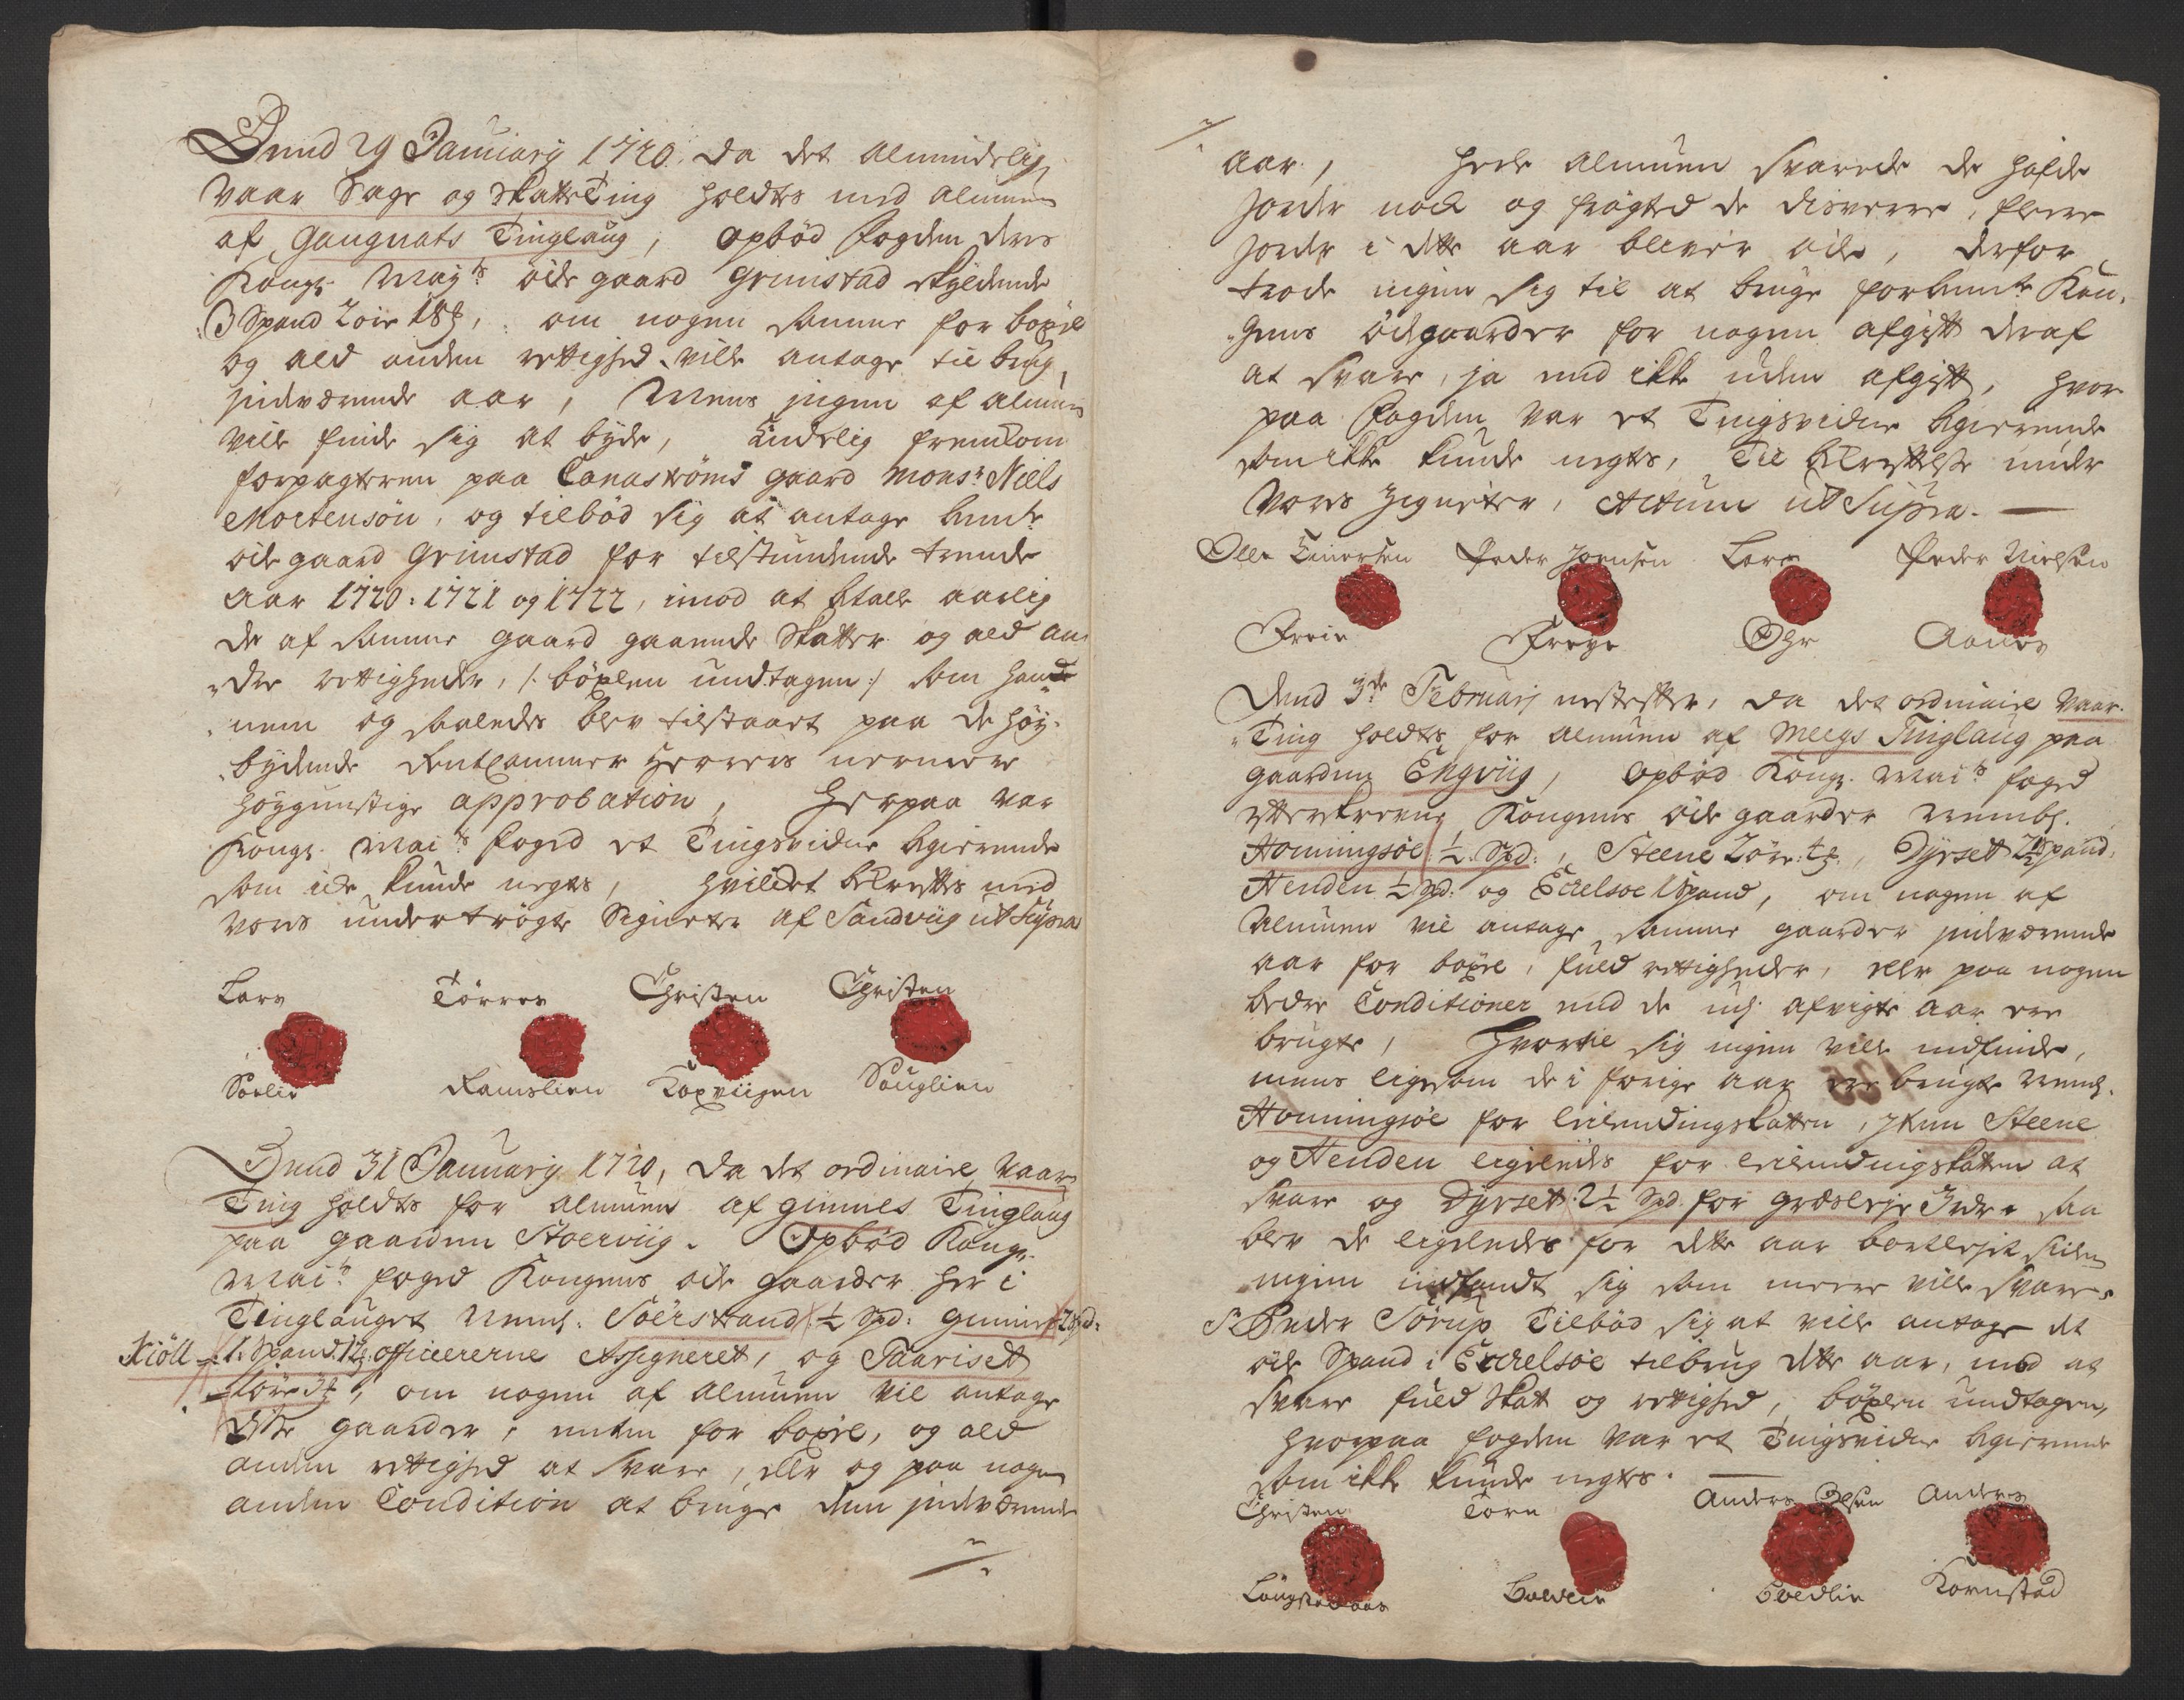 Dend 29 January 1720. da det Almindelig
Vaar Sage og SkatteTing holdtes med Almuen
af Gaugnats Tinglaug, opbød Fogden dens
Kongl. Mayts øde gaard Grimstad skyldende
3 Spand 2 øre, om nogen samme for boxel
og ald anden rettighed ville antage til brug
indværende aar, Mens ingen af Almuen
ville finde sig at byde, Endelig fremkom
forpagteren paa Canastrøms gaard Monsr Niels
Mortensøn, og tilbød sig at antage bemte
øde gaard Grimstad for tilstundende trende
Aar 1720: 1721 og 1722, imod at betale aarlig
de af samme gaard gaaende Skatter og ald an-
dre rettigheder, /: böxlen undtagen :/ som hand-
nem og saaledes blev tilstaaet paa de høy-
bydende RentCammer Herrers nermere
høygunstige approbation, Herpaa var
Kongl. Maits foged et Tingsvidne begierende
som icke kunde negtes, hvilcket bekreftes med
vores undertrögte Signeter af Sandviig ut Supra
Lars Tørres Christen Christen
Søelie Ramslien Torviigen Sauglien
Dend 31 January 1720, da det ordinaire Vaar
Ting holdtes for Almuen af Gimnes Tinglaug
paa gaarden Stoerviig. Opbød Kongl.
Maits foged Kongens øde gaarder her i
Tinglauget Neml. Söerstrand ½ Spd: Gimnes 2 Spd:
Kiöll 1 Spand officererne Assigneret, og Saarisett
om nogen af Almuen vil antage
disse gaarder, enten for boxel, og ald
anden rettighed at svare, eller og paa nogen
anden Condition at bruge dem indværende
aar, Hele Almuen svarede de hafde
Jorder nock og frögted de disverre, flere
Jorder i dette aar bliver øde, derfor
trode ingen sig til at bruge forbemte Kon-
gens ödegaarder for nogen afgift deraf
at svare, ja end ikke uden afgift, hvor
paa Fogden var et Tingsvidne begierende
som ikke kunde negtes, Til bekreftelse under
Vores Zigneter, Actum ut Supra.
Olle Einersen Peder Joensen Lars Peder Nielsen
Freie Freye Ohr Aanes
Dend 3de February nestefter, da det ordinaire Vaar-
Ting holdtes for Almuen af Meegs Tinglaug paa
gaarden Engviig, Opbød Kongl. Maits foged
efterskrevne Kongens øde gaarder Nembl.
Honningsøe ½ Spd:, Steene 2 öre, Dyrsett 2½ Spand,
Henden ½ Spd: og Eckelsøe 1 Spand, om nogen af
Almuen vil antage samme gaarder indværende
aar for boxel, fuld rettigheder, eller paa nogen
bedre Conditioner end de udj afvigte aar ere
brugte, Hvortil sig ingen ville indfinde,
mens ligesom de i forige aar ere brugte Neml.
Honningsøe for leilendingskatten, Item Steene
og Henden ligeledes for leilendingskatten at
svare og Dyrsett 2½ Spd for græsleje Inde, saa
blev de ligeledes for dette aar bortlejet siden
ingen indfandt sig som meere ville svare.
Sr Peder Sørup Tilbød sig at ville antage det
øde Spand i Eckelsøe til brug dette aar, med at
svare fuld Skatt og rettighed, böxlen undtagen,
hvorpaa fogden var et Tingsvidne begierende
som ikke kunde negtes.
Christen Tore Anders Olsen Anders
Boedlie Kornstad